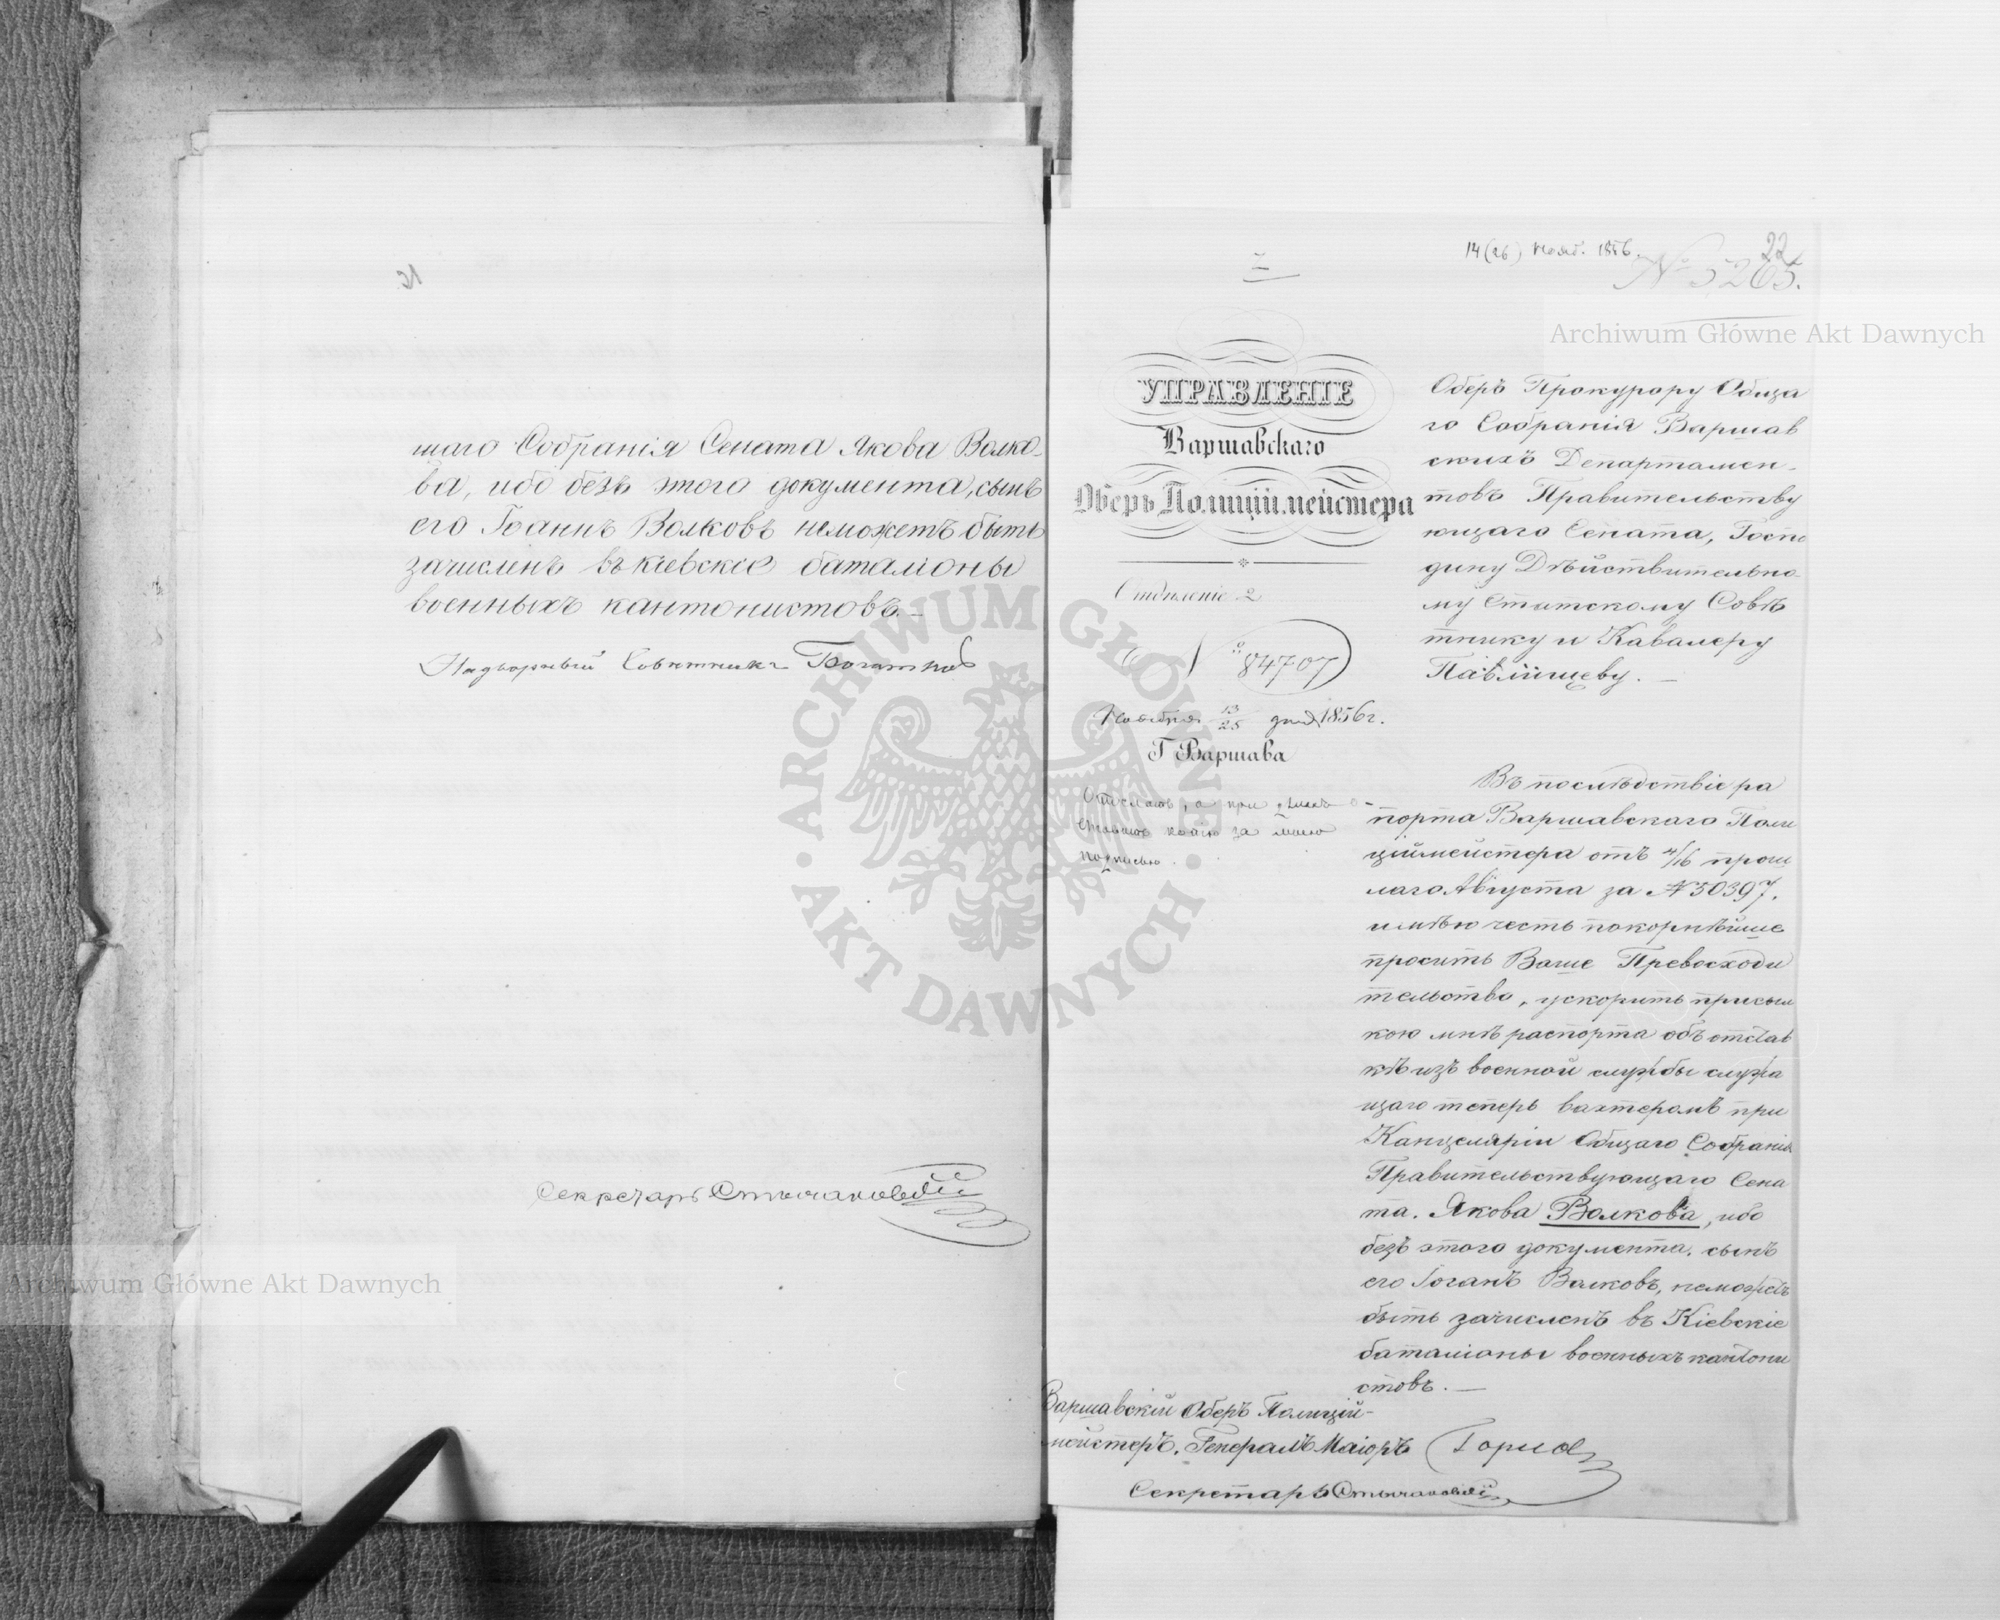 щаго Собранія Сената Якова Волко-
ва, ибо безъ этого документа, сынъ
его Іоаннъ Волковъ неможетъ быть
зачисленъ въ кіевскіе баталіоны
военныхъ кантонистовъ.—
Надворный Совѣтникъ
Секретарь
14 (26) Нояб. 1856.
22
№ 5265.
УПРАВЛЕНІЕ
Варшавскаго
Оберъ Полиціймейстера
Отдѣленіе 2
№ 84707
Ноября 13/25 дня 1856 г.
Г Варшава
а при дѣлѣ
копію за моею
подписью.
Оберъ Прокурору Обща
го Собранія Варшав
скихъ Департамен-
товъ Правительству
ющаго Сената, Госпо
дину Дѣйствительно-
му Статскому Совѣ
тнику и Кавалеру
Павлищеву.—
Въ послѣдствіе ра
порта Варшавскаго Поли
ціймейстера отъ 4/16 прош
лаго Августа за № 50397.
имѣю честь покорнѣйше
просить Ваше Превосходи
тельство, ускорить присыл
кою мнѣ распорта объ отстав
кѣ изъ военной службы служа
щаго теперь вахтеромъ при
Канцеляріи Общаго Собранія
Правительствующаго Сена
та. Якова Волкова, ибо
безъ этого документа, сынъ
его Іоганъ Волковъ, неможетъ
быть зачисленъ въ Кіевскіе
баталіоны военныхъ кантони
стовъ.—
Варшавскій Оберъ Полицій-
мейстеръ, Генералъ Маіоръ
Секретарь
Archiwum Główne Akt Dawnych
Archiwum Główne Akt Dawnych
ARCHIWUM GŁÓWNE
AKT DAWNYCH